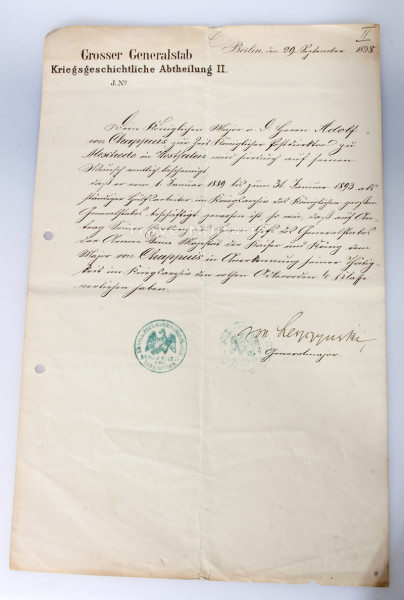 II
Grosser Generalstab
Berlin, den 29. September 1898
Kriegsgeschichtliche Abtheilung II.
J. No
Dem Königlichen Major a. D. Herrn Adolf
von Chappuis zur Zeit Königlicher Postdirektor zu
Meschede in Westfalen wird hierdurch auf seinen
Wunsch amtlich bescheinigt
daß er vom 1. Januar 1889 bis zum 31. Januar 1893 als
ständiger Hülfsarbeiter im Kriegsarchiv des Königlichen großen
Generalstabes beschäftigt gewesen ist so wie, daß auf An-
trag Seiner Chef des Generalstabes
der Armee Seine Majestät der Kaiser und König dem
Major von Chappuis in Anerkennung seiner Thätig-
keit im Kriegsarchiv den rothen Adlerorden 4. Klasse
verliehen haben.
von Leszczynski,
Generalmajor